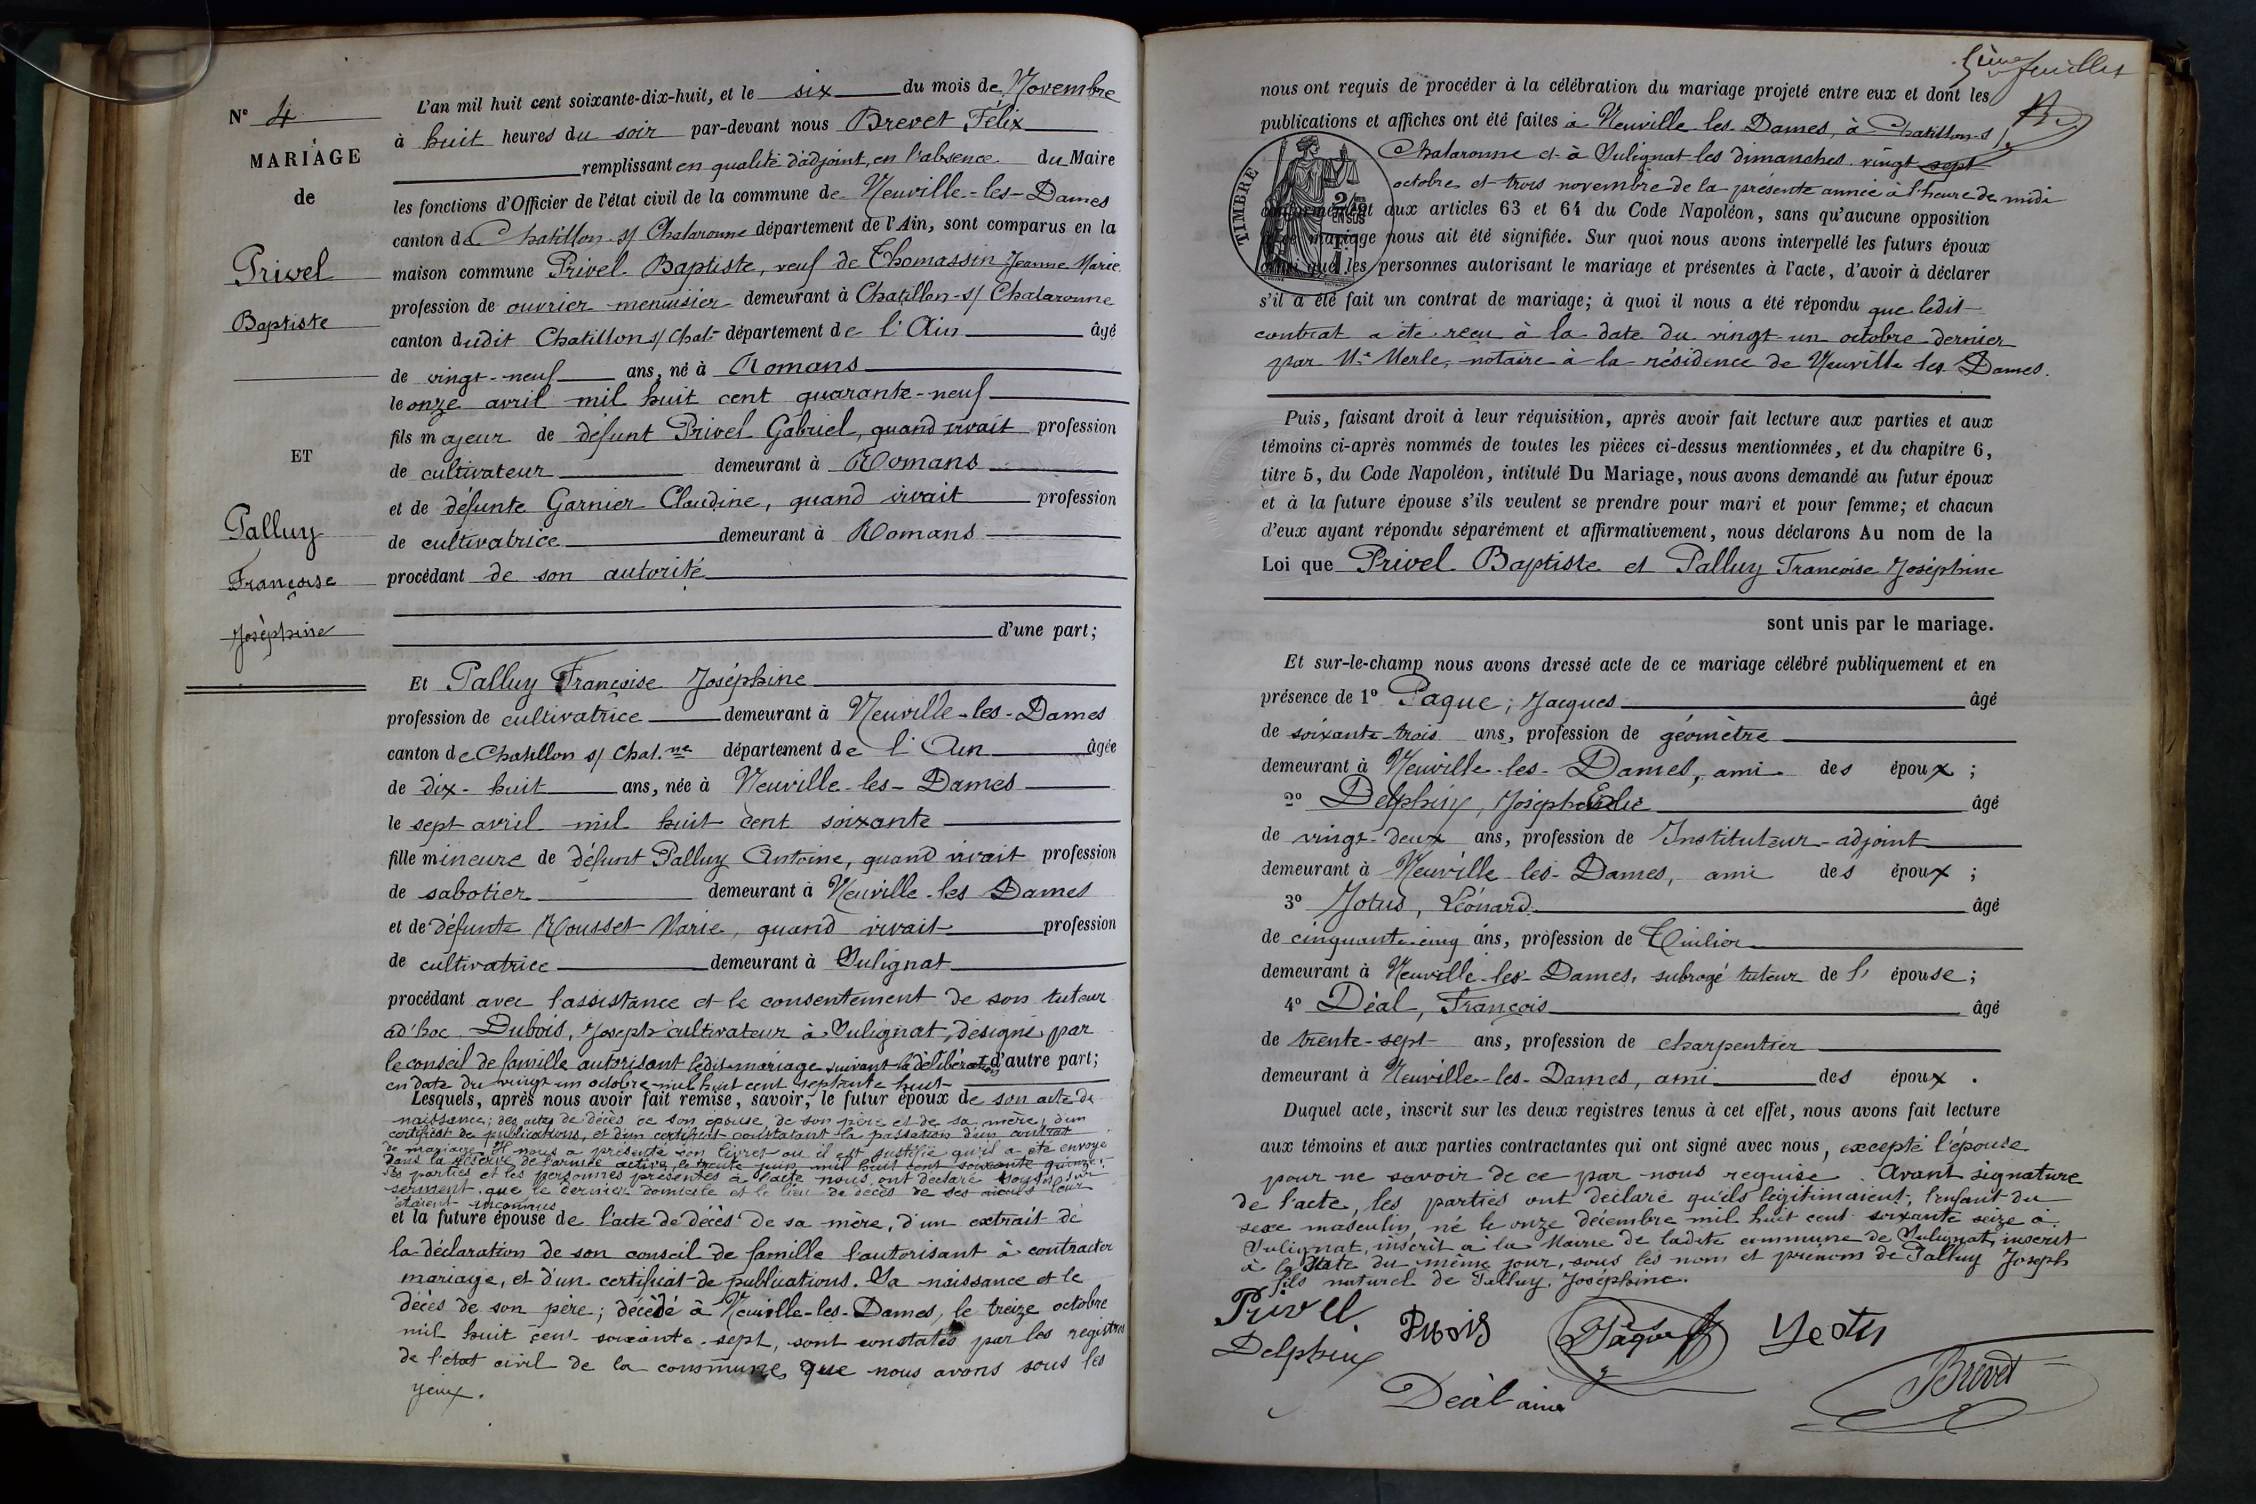 N° 4
MARIAGE
de
Privel
Baptiste
ET
Palluy
Françoise
Joséphine
L'an mil huit cent soixante-dix-huit, et le six du mois de Novembre
à huit heures du soir par-devant nous Brevet Félix
remplissant en qualité d'adjoint, en l'absence du Maire
les fonctions d'Officier de l'état civil de la commune de Neuville-les-Dames
canton de Chatillon s/ Chalaronne département de l'Ain, sont comparus en la
maison commune Privel Baptiste, veuf de Thomassin Jeanne Marie
profession de ouvrier menuisier demeurant à Chatillon-s/ Chalaronne
canton dudit Chatillon s/ Chal. département de l'Ain âgé
de vingt-neuf ans, né à Romans
le onze avril mil huit cent quarante-neuf
fils majeur de défunt Privel Gabriel, quand vivait profession
de cultivateur demeurant à Romans
et de défunte Garnier Claudine, quand vivait profession
de cultivatrice demeurant à Romans
procédant de son autorité
d'une part;
Et Palluy Françoise Joséphine
profession de cultivatrice demeurant à Neuville-les-Dames
canton de Chatillon s/ Chal.ne département de l'Ain âgée
de dix-huit ans, née à Neuville-les-Dames
le sept avril mil huit cent soixante
fille mineure de défunt Palluy Antoine, quand vivait profession
de sabotier demeurant à Neuville-les Dames
et de défunte Rousset Marie, quand vivait profession
de cultivatrice demeurant à Sulignat
procédant avec l'assistance et le consentement de son tuteur
ad'hoc Dubois, Joseph cultivateur à Sulignat, désigné par
le conseil de famille autorisant ledit mariage suivant la délibération d'autre part;
en date du vingt un octobre mil huit cent septante huit
Lesquels, après nous avoir fait remise, savoir, le futur époux de son acte de
naissance; des actes de décès de son épouse, de son père et de sa mère, d'un
certificat de publications, et d'un certificat constatant la passation d'un contrat
de mariage. Il nous a présenté son livret où il est justifié qu'il a été envoyé
dans la réserve de l'armée active, le trente juin mil huit cent soixante quinze.
Les parties et les personnes présentes à l'acte nous ont déclaré sous
serment que le dernier domicile et le lieu de décès de ses aïeuls leur
étaient inconnus
et la future épouse de l'acte de décès de sa mère, d'un extrait de
la déclaration de son conseil de famille l'autorisant à contracter
mariage, et d'un certificat de publications. Sa naissance et le
décès de son père; décédé à Neuville-les-Dames, le treize octobre
mil huit cent soixante-sept, sont constatés par les registres
de l'état civil de la commune, que nous avons sous les
yeux.
5ème feuillet
nous ont requis de procéder à la célébration du mariage projeté entre eux et dont les
publications et affiches ont été faites à Neuville les Dames, à Chatillon-s/
Chalaronne et à Sulignat les dimanches vingt sept
octobre et trois novembre de la présente année à l'heure de midi
TIMBRE
conformément aux articles 63 et 64 du Code Napoléon, sans qu'aucune opposition
à ce mariage nous ait été signifiée. Sur quoi nous avons interpellé les futurs époux
ainsi que les personnes autorisant le mariage et présentes à l'acte, d'avoir à déclarer
s'il a été fait un contrat de mariage; à quoi il nous a été répondu que ledit
contrat a été reçu à la date du vingt-un octobre dernier
par Me Merle, notaire à la résidence de Neuville les Dames.
Puis, faisant droit à leur réquisition, après avoir fait lecture aux parties et aux
témoins ci-après nommés de toutes les pièces ci-dessus mentionnées, et du chapitre 6,
titre 5, du Code Napoléon, intitulé Du Mariage, nous avons demandé au futur époux
et à la future épouse s'ils veulent se prendre pour mari et pour femme; et chacun
d'eux ayant répondu séparément et affirmativement, nous déclarons Au nom de la
Loi que Privel Baptiste et Palluy Françoise Joséphine
sont unis par le mariage.
Et sur-le-champ nous avons dressé acte de ce mariage célébré publiquement et en
présence de 1° Paque, Jacques âgé
de soixante-trois ans, profession de géomètre
demeurant à Neuville-les-Dames, ami des époux;
2° Delphin, Joseph Elie âgé
de vingt-deux ans, profession de Instituteur-adjoint
demeurant à Neuville les-Dames, ami des époux;
3° Jotus, Léonard âgé
de cinquante-cinq ans, profession de Tuilier
demeurant à Neuville-les-Dames, subrogé tuteur de l'épouse;
4° Déal, François âgé
de trente-sept ans, profession de charpentier
demeurant à Neuville-les-Dames, ami des époux.
Duquel acte, inscrit sur les deux registres tenus à cet effet, nous avons fait lecture
aux témoins et aux parties contractantes qui ont signé avec nous, excepté l'épouse
pour ne savoir de ce par nous requise. Avant signature
de l'acte, les parties ont déclaré qu'ils légitimaient, l'enfant du
sexe masculin né le onze décembre mil huit cent soixante seize à
Sulignat, inscrit à la Mairie de ladite commune de Sulignat, inscrit
à la date du même jour, sous les nom et prénoms de Palluy Joseph
fils naturel de Palluy, Joséphine.
Privel
Delphin
Déal ainé
Brevet